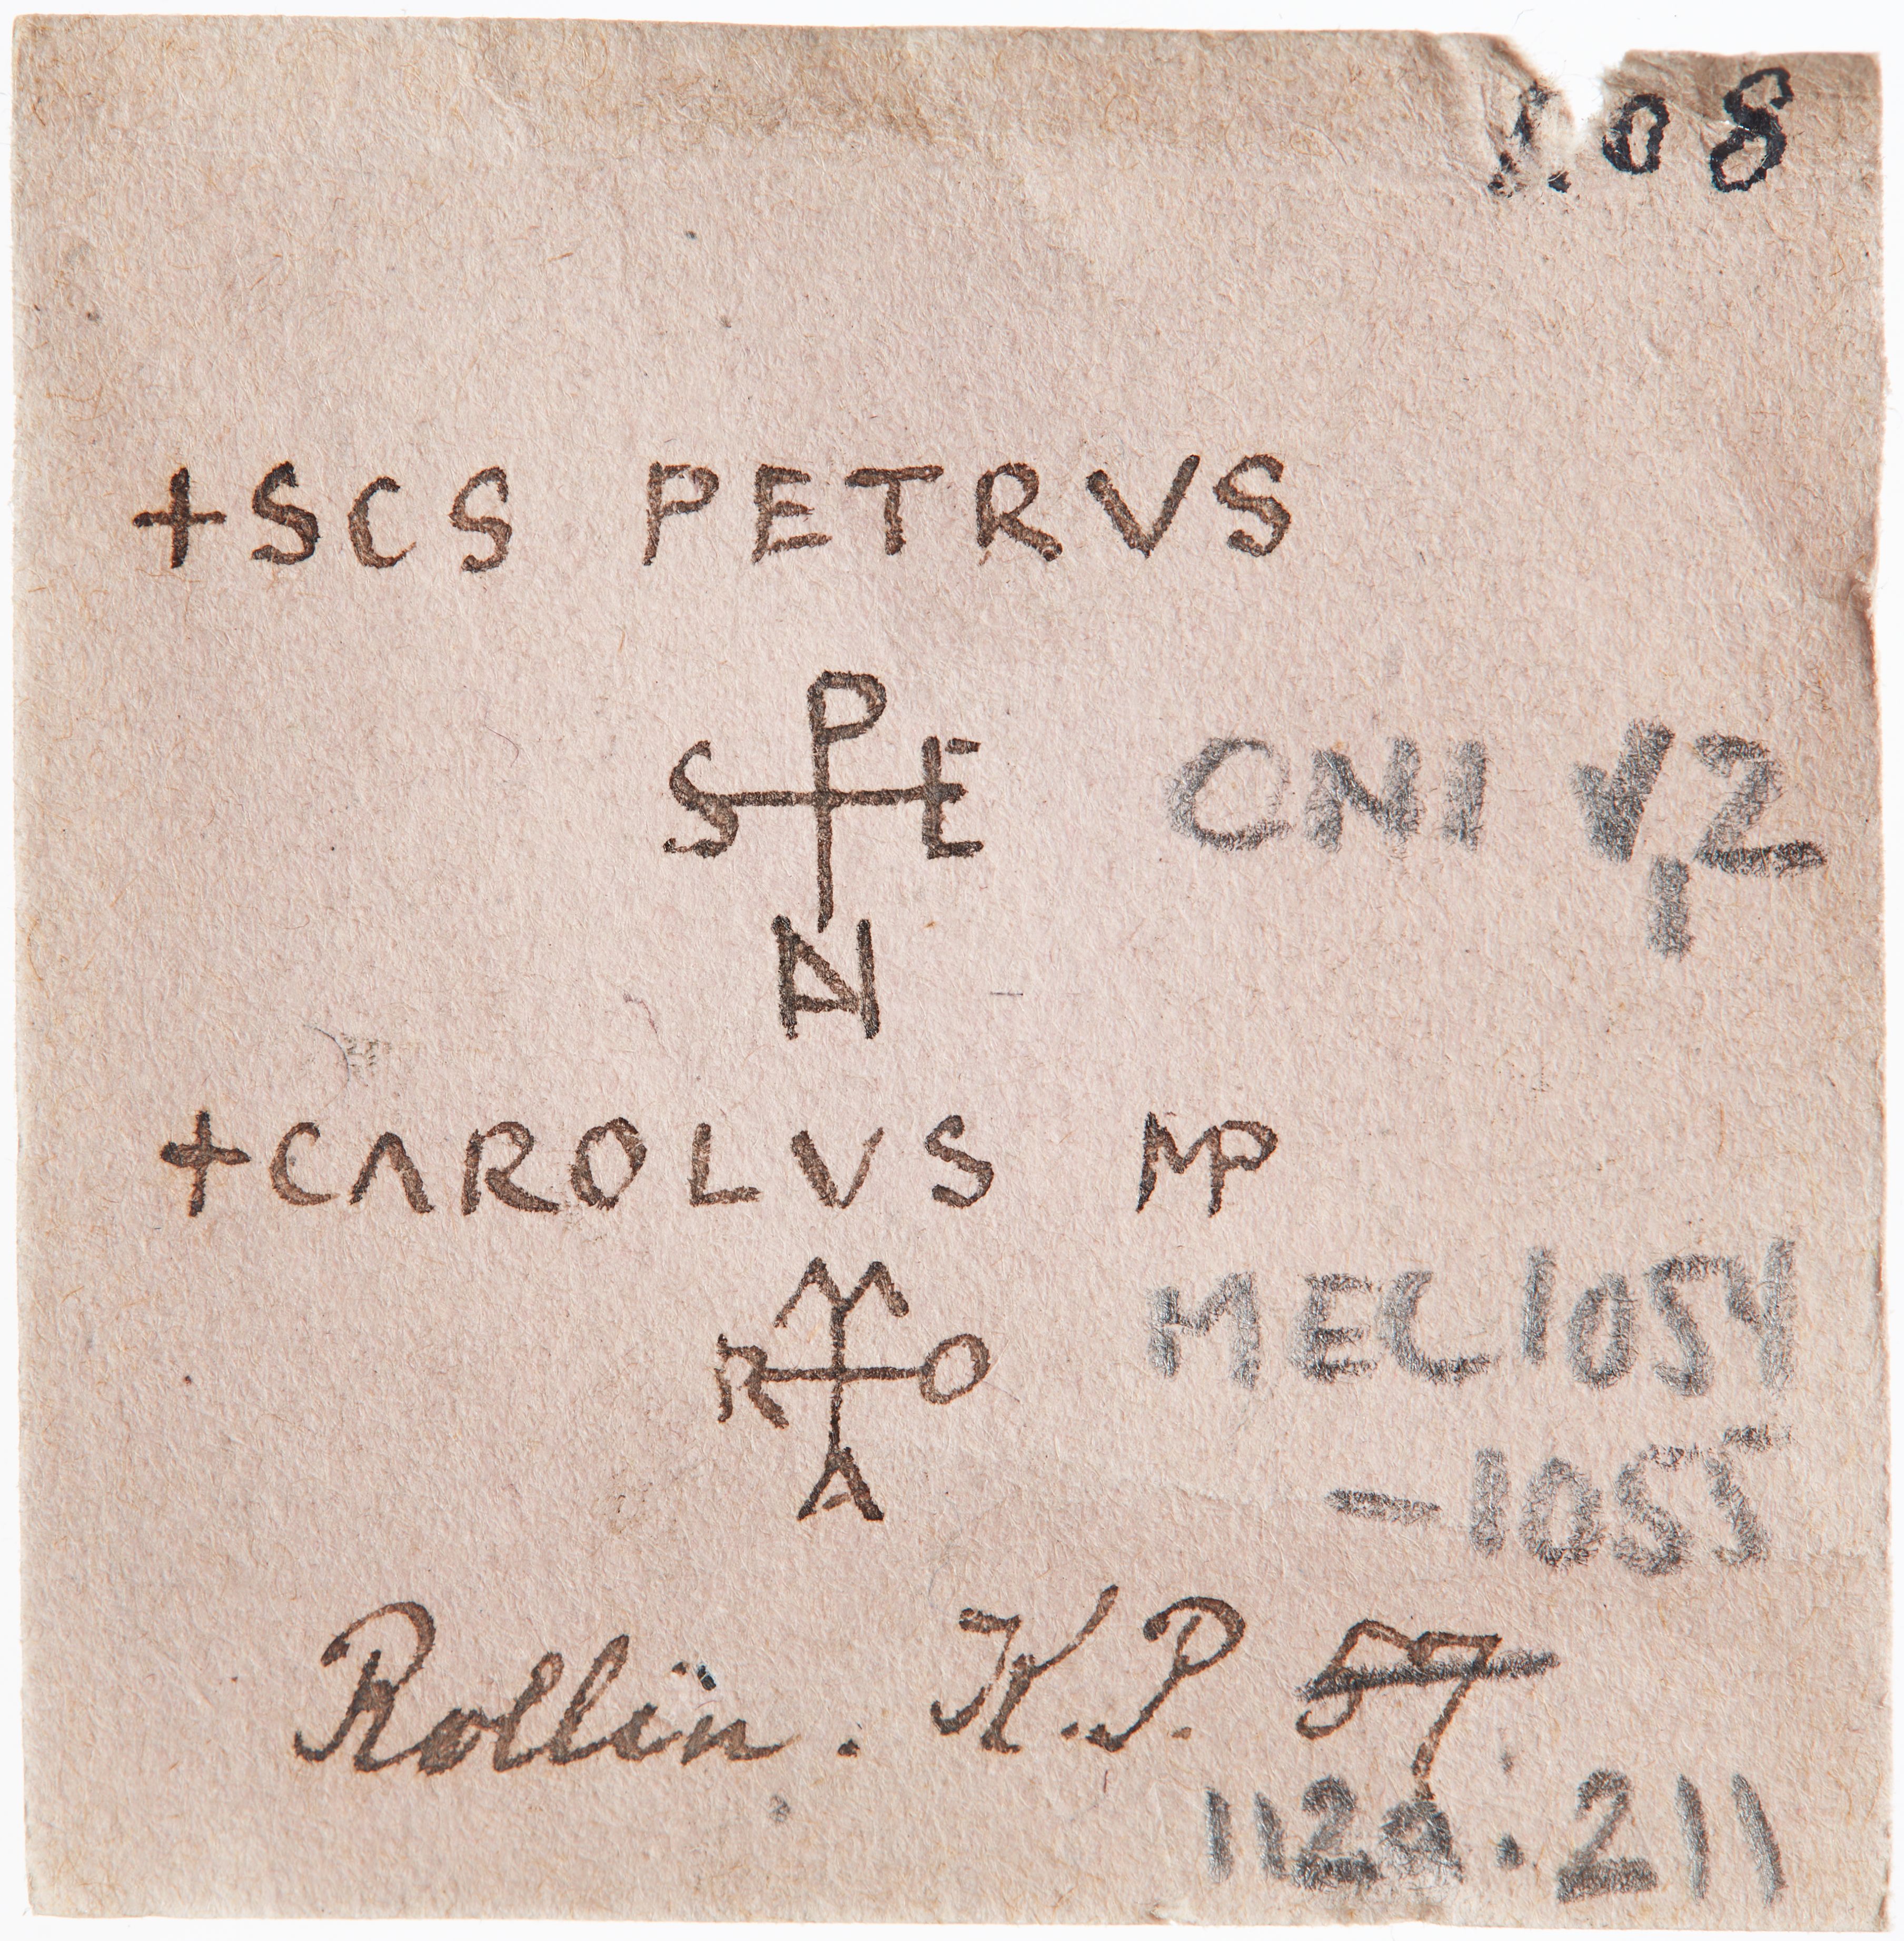 1.08
+SCS PETRVS
P
S E CNI V,2
N
+CAROLVS MP
M
R O MEC 1054
A
-1055
Rollin. K.P. 57
112a.211